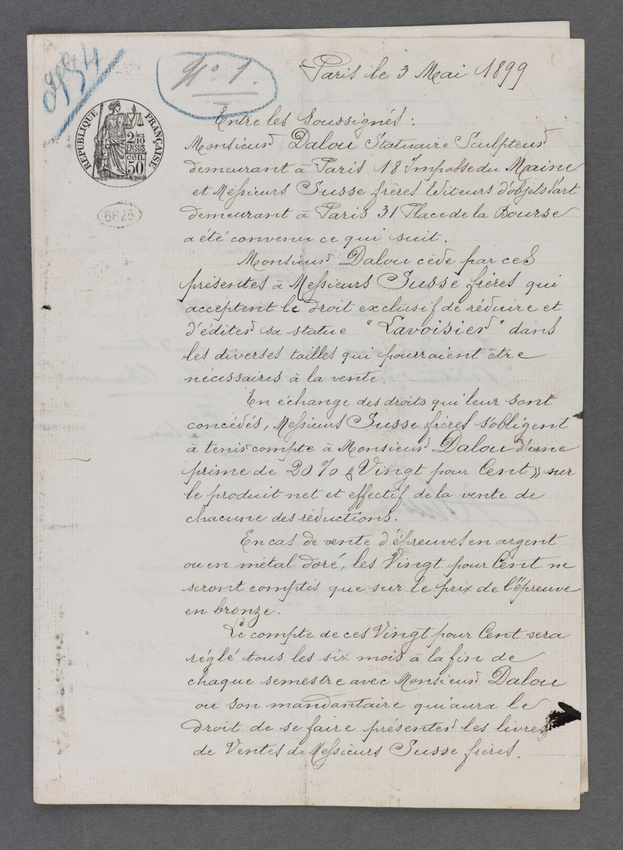 9734
N° 1.
Paris le 3 Mai 1899
RÉPUBLIQUE FRANÇAISE
2/10
EN SUS
2 f
50 cen
6625
Entre les Soussignés :
Monsieur Dalou Statuaire Sculpteur
demeurant à Paris 18 Impasse du Maine
et Messieurs Susse frères Editeurs d'objets d'art
demeurant à Paris 31 Place de la Bourse
a été convenu ce qui suit.
Monsieur Dalou cède par ces
présentes à Messieurs Susse frères qui
acceptent le droit exclusif de réduire et
d'éditer sa statue "Lavoisier" dans
les diverses tailles qui pourraient être
nécessaires à la vente
En échange des droits qui leur sont
concédés, Messieurs Susse frères s'obligent
à tenir compte à Monsieur Dalou d'une
prime de 20% « Vingt pour Cent » sur
le produit net et effectif de la vente de
chacune des réductions.
En cas de vente d'épreuves en argent
ou en métal doré, les Vingt pour Cent ne
seront comptés que sur le prix de l'épreuve
en bronze.
Le compte de ces Vingt pour Cent sera
réglé tous les six mois à la fin de
chaque semestre avec Monsieur Dalou
ou son mandantaire qui aura le
droit de se faire présenter les livres
de Ventes de Messieurs Susse frères.